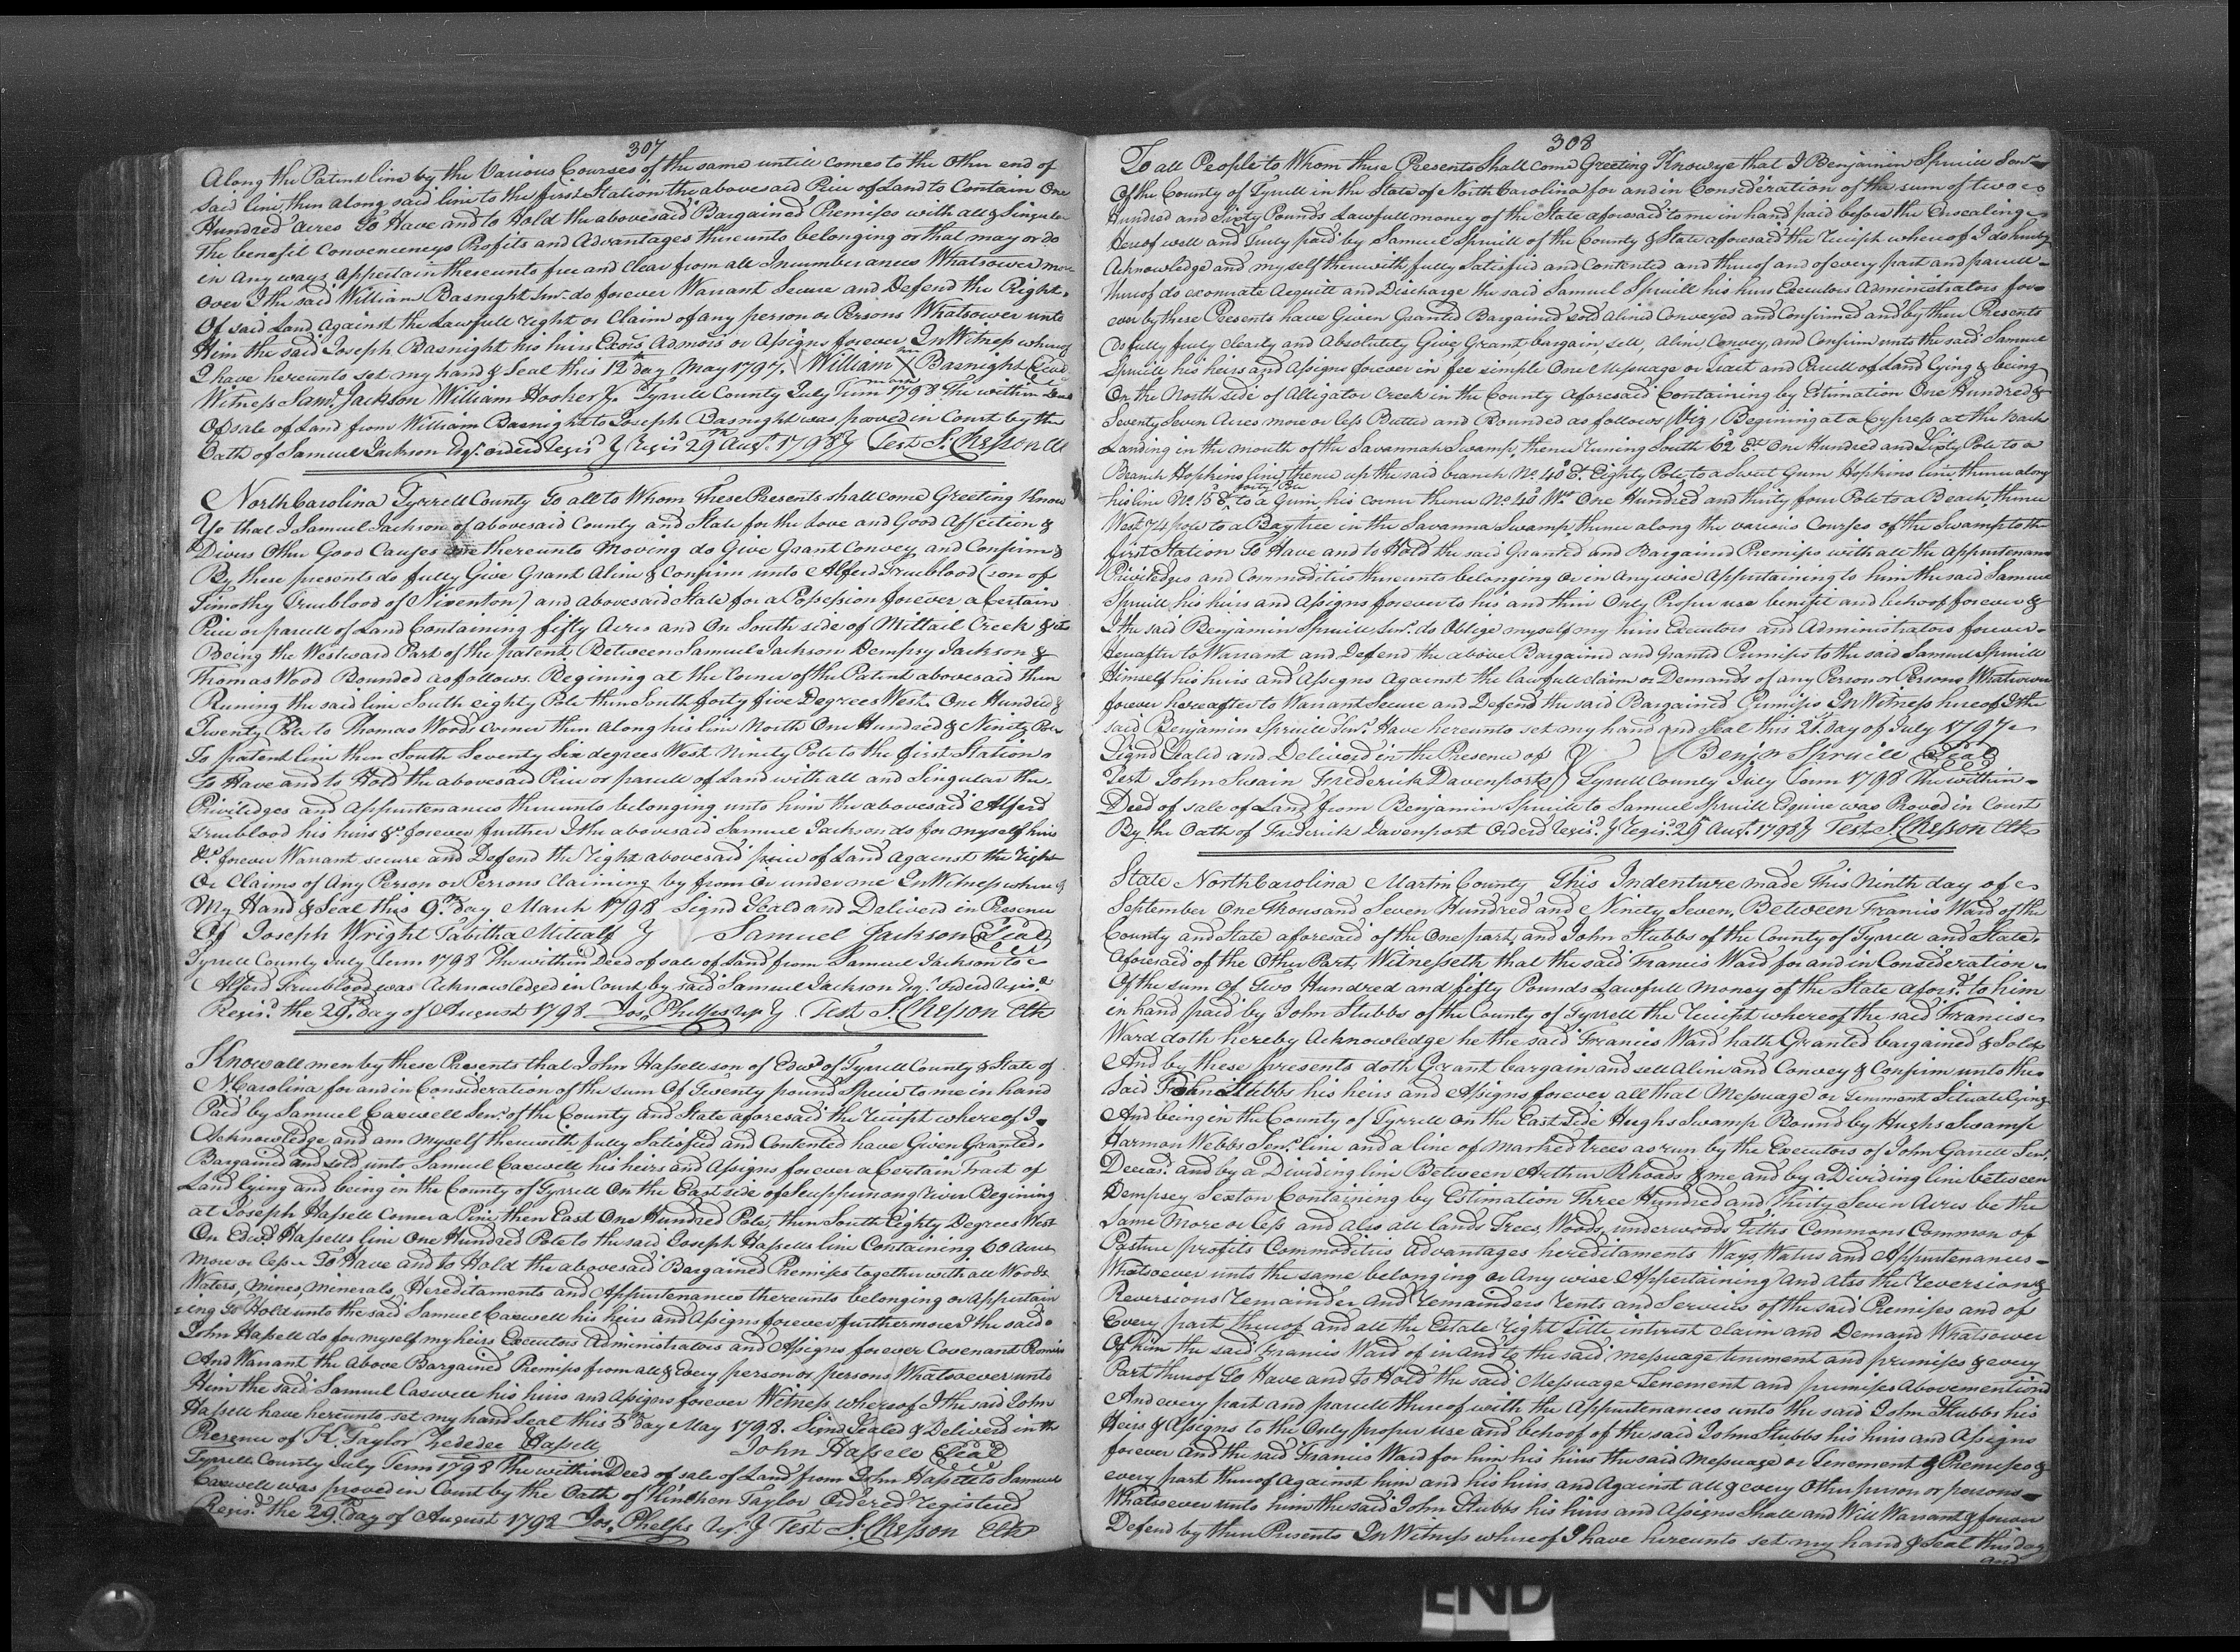 307
Along the Patent line by the Various Courses of the same untill comes to the Other end of
Said line, then along said line to the first Station the abovesaid Piece of Land to Contain One
Hundred Acres To Have and to Hold the abovesaid Bargained Premises with all & Singular
The benefit Conveneneys Profits and Advantages thereunto belonging or that may or do
in Any ways Appertain thereunto free and Clear from all Incumberances Whatsoever more
Over I the said William Basnight Senr. do forever Warrant Secure and Defend the Right
Of said Land Against the Lawfull right or Claim of any person or Persons Whatsower unto
Him the said Joseph Basnight his heirs Exors. Admors or Assigns forever In Witness whereof
I have hereunto set my hand & Seal this 12th day May 1797. William X Basnight Seal
mark
Witness Saml. Jackson William Hooker Tyrrell County July Term 1798 The within Deed
Of sale of Land from William Basnight to Joseph Basnight was proved in Court by the
Oath of Samuel Jackson Esqr. orderd Regisd. Regisd 29th Augt. 1798 Test S. Chesson Clk
North Carolina Tyrrell County To all to Whom These Presents shall come Greeting Know
Ye that I Samuel Jackson of abovesaid County and State for the Love and Good Affection &
Divers Other Good Causes me thereunto Moving do Give Grant Convey and Confirm &
By these presents do fully Give Grant Aline & Confirm unto Alferd Trueblood (son of
Timothy Trueblood of Nixenton) and abovesaid State for a Possession forever a Certain
Piece or parcell of Land Containing fifty Acres and On South side of Milltail Creek & it
Being the Westward Part of the patent Between Samuel Jackson Dempsy Jackson &
Thomas Wood Bounded as follows. Begining at the Corner of the Patent abovesaid then
Runing the said line South eighty Pole then South forty five Degrees West One Hundred &
Twenty Pole to Thomas Woods corner then along his line North One Hundred & Ninety Pole
To patent line then South Seventy Six degrees West Ninety Pole to the first Station
To Have and to Hold the abovesaid Piece or parcell of Land with all and Singular the
Priviledges and Appurtenances thereunto belonging unto him the abovesaid Alferd
Trueblood his heirs &c. forever further I the abovesaid Samuel Jackson do for myself heirs
&c. forever Warrant secure and Defend the right abovesaid piece of Land Against the right
Or Claims of Any Person or Persons Claiming by from Or under me In Witness whereof
My Hand & Seal this 9th. day March 1798 Signd Seald and Deliverd in Presence
Of Joseph Wright Tabitha Metcalf Samuel Jackson Seal
Tyrrell County July Term 1798 The within Deed of sale of Land from Samuel Jackson to
Alferd Trueblood was Acknowledged in Court by said Samuel Jackson Esqr. Orderd Regisd
Regisd. the 29th. day of August 1798. Jos, Phelps Test S. Chesson Clk
Know all men by these Presents that John Hassell son of Edwd of Tyrrell County & State of
N Carolina for and in Consideration of the sum Of Twenty pound Specie to me in hand
Paid by Samuel Caswell Senr. of the County and State aforesaid the receipt whereof I
Acknowledge and am Myself therewith fully Satisfied and Contented have Given Granted
Bargained and sold unto Samuel Caswell his heirs and Assigns forever a Certain Tract of
Land lying and being in the County of Tyrrell On the East side of Scuppernong river Begining
at Joseph Hassell Corner a Pine then East One Hundred Pole, then South Eighty Degrees West
On Edwd Hassells line One Hundred Pole to the said Joseph Hassells line Containing 60 Acres
More or less To Have and to Hold the abovesaid Bargained Premises together with all Woods
Waters, Mines, Minerals, Hereditaments and Appurtenances thereunto belonging or Appertain
=ing To Hold unto the said Samuel Caswell his heirs and Assigns forever furthermore I the said
John Hassell do for myself my heirs Executors Administrators and Assigns forever Covenant Promis
And Warrant the Above Bargained Premises from all & Every person or persons Whatsoever unto
Him the said Samuel Caswell his heirs and Assigns forever Witness whereof I the said John
Hassell have hereunto set my hand Seal this 5th day May 1798. Signd Sealed & Deliverd in the
Presence of K. Taylor Zebedee Hassell John Hassell Seal
Tyrrell County July Term 1798 The within Deed of sale of Land from John Hassell to Samuel
Caswell was proved in Court by the Oath of Kinchen Taylor Ordered registered
Regisd. the 29th. day of August 1798 Jos. Phelps Test S. Chesson Clk
308
To all People to Whom these Presents Shall come Greeting Know ye that I Benjamin Spruill Senr
Of the County of Tyrrell in the State of North Carolina for and in Consideration of the sum of two
Hundred and Sixty Pounds Lawfull money of the State aforesaid to me in hand paid before the Ensealing
Hereof well and Truly paid by Samuel Spruill of the County & State aforesaid the receipt whereof I do hereby
Acknowledge and myself therewith fully Satisfied and Contented and thereof and of every part and parcell
thereof do exonerate Acquitt and Discharge the said Samuel Spruill his heirs Executors Administrators for
ever by these Presents have Given Granted Bargained sold Alined Conveyed and Confirmed and by these Presents
do fully, freely clearly and Absolutely Give, Grant, bargain, sell, Aline Convey, and Confirm unto the said Samuel
Spruill his heirs and Assigns forever in fee simple One Messuage or Tract and Parcell of Land Lying & being
On the North side of Alligator Creek in the County Aforesaid Containing by Estimation One Hundred &
Seventy Seven Acres more or less Butted and Bounded as follows (Viz) Begining at a Cypress at the Back
Landing in the mouth of the Savannah Swamp, thence Runing South 62 Et. One Hundred and Sixty Pole to a
Branch Hopkins line, thence up the said branch No. 40 Et. Eighty Pole, to a Sweet Gum Hopkins line thence along
forty Pole
his line No. 15 E, to a Gum, his corner thence No. 40 Wt One Hundred and thirty four Pole to a Beach, thence
West 74 pole to a Bay tree in the Savanna Swamp, thence along the various Courses of the Swamp to the
first Station To Have and to Hold the said Granted and Bargained Premises with all the Appurtenances
Priviledges and Commodities thereunto belonging Or in Any wise Appertaining to him the said Samuel
Spruill, his heirs and Assigns forever to his and their Only Proper use benefit and behoof forever &
I the said Benjamin Spruill Senr. do Oblige myself my heirs Executors and Administrators forever
hereafter to Warrant and Defend the above Bargained and Granted Premises to the said Samuel Spruill
Himself his heirs and Assigns Against the lawfull claim or Demands of any Person or Persons Whatsoever
forever hereafter to Warrant Secure and Defend the said Bargained Premises In Witness hereof I the
said Benjamin Spruill Senr. Have hereunto set my hand and Seal this 21st day of July 1797
Signd Sealed and Deliverd in the Presence of Benjn Spruill Seal
Test John Swain Frederick Davenport Tyrrell County July Term 1798 The within
Deed of sale of Land from Benjamin Spruill to Samuel Spruill Esquire was Proved in Court
By the Oath of Frederick Davenport Orderd Regisd. Regisd. 29th Augt. 1798 Test S. Chesson Clk
State North Carolina Martin County This Indenture made This Ninth day of
September One thousand Seven Hundred and Ninety Seven, Between Francis Ward of the
County and State aforesaid of the One part, and John Stubbs of the County of Tyrrell and State
Aforesaid of the Other Part, Witnesseth that the said Francis Ward for and in Consideration
Of the sum Of Two Hundred and fifty Pounds Lawfull Money of the State aforsd. to him
in hand paid by John Stubbs of the County of Tyrrell the Receipt whereof the said Francis
Ward doth hereby Acknowledge he the said Francis Ward hath Granted bargained & Sold
And by these presents doth Grant bargain and sell Aline and Convey & Confirm unto the
Said John Stubbs his heirs and Assigns forever all that Messuage or Tenement Situate lying
And being in the County of Tyrrell On the East Side Hughs Swamp Bound by Hughs Swamp
Harmon Webbs Senr. line and a line of Marked trees as run by the Executors of John Garrett Senr.
Deceas. and by a Dividing line Between Arthur Rhoads & me and by a Dividing line between
Dempsey Sexton Containing by Estimation Three Hundred and Thirty Seven Acres be the
Same More or less and also all lands Trees, Woods, underwoods Tiths Commons Common of
Pasture profits Commodities advantages hereditaments Ways, Waters and Appurtenances
Whatsoever unto the same belonging or Any wise Appertaining and also the reversion &
Reversions remainder And remainders rents and Services of the said Premises and of
Every part thereof and all the Estate right title interest claim and Demand Whatsoever
Of him the said Francis Ward of in and to the said messuage tenement and premises & every
Part thereof To Have and To Hold the said Messuage Tenement and premises Abovementiond
And every part and parcell thereof with the Appurtenances unto the said John Stubbs his
Heirs & Assigns to the Only proper Use and behoof of the said John Stubbs his heirs and Assigns
forever And the said Francis Ward for him his heirs the said Messuage or Tenement & Premises &
every part thereof Against him and his heirs, and Against all & every Other person or persons
Whatsoever unto him the said John Stubbs his heirs and Assigns Shall and Will Warrant & forever
Defend by these Presents In Witness whereof I have hereunto set my hand & Seal this day
and
END